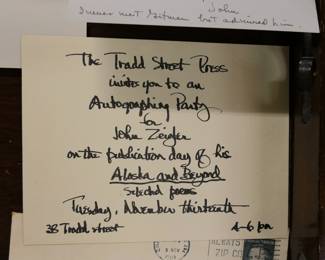 John
I never met Latimer but admired him.
The Tradd Street Press
invites you to an
Autographing Party
for
John Zeigler
on the publication day of his
Alaska and Beyond
selected poems
Tuesday, November thirteenth
38 Tradd Street
4-6 pm
ALWAYS
ZIP CO